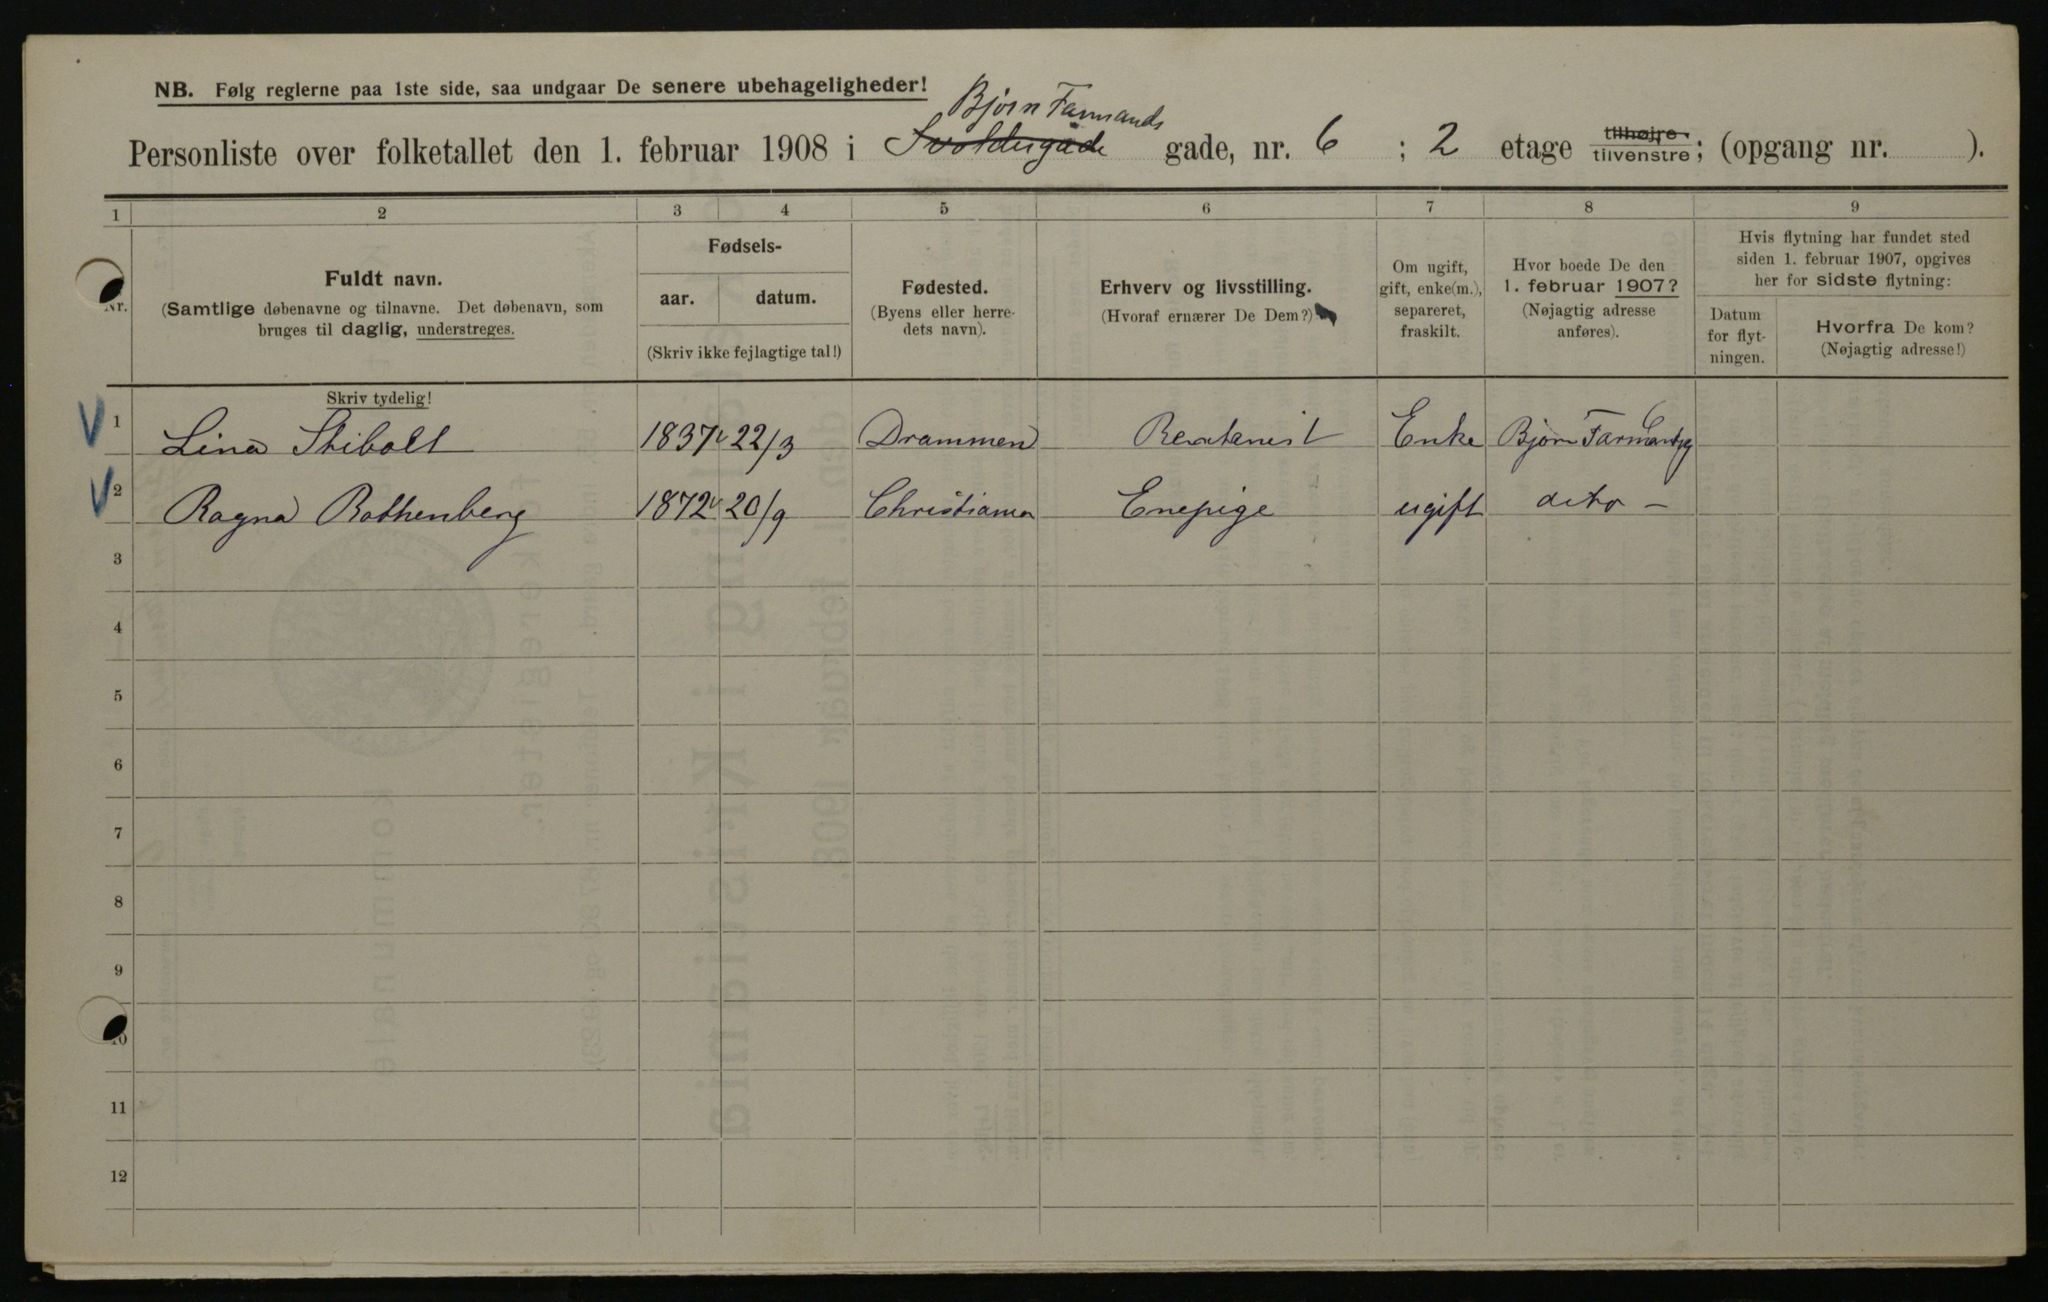 NB. Følg reglerne paa 1ste side, saa undgaar De senere ubehageligheder!
Bjørn Farmands
Personliste over folketallet den 1. februar 1908 i Svoldergade gade, nr. 6 ; 2 etage tilhøjre tilvenstre; (opgang nr. ).
1 2 3 4 5 6 7 8 9
Nr.
Fuldt navn.
(Samtlige døbenavne og tilnavne. Det døbenavn, som
bruges til daglig, understreges.
Fødsels-
aar. datum.
(Skriv ikke fejlagtige tal!)
Fødested.
(Byens eller herre-
dets navn).
Erhverv og livsstilling.
(Hvoraf ernærer De Dem?)
Om ugift,
gift, enke(m.),
separeret,
fraskilt.
Hvor boede De den
1. februar 1907?
(Nøjagtig adresse
anføres).
Hvis flytning har fundet sted
siden 1. februar 1907, opgives
her for sidste flytning:
Datum
for flyt-
ningen.
Hvorfra De kom?
(Nøjagtig adresse!)
Skriv tydelig!
1 Lina Stibolt 1837 22/3 Drammen Rentenist Enke Bjørn Farmandsg 6
2 Ragna Rothenberg 1872 20/9 Christiania Enepige ugift dito —
3
4
5
6
7
8
9
10
11
12